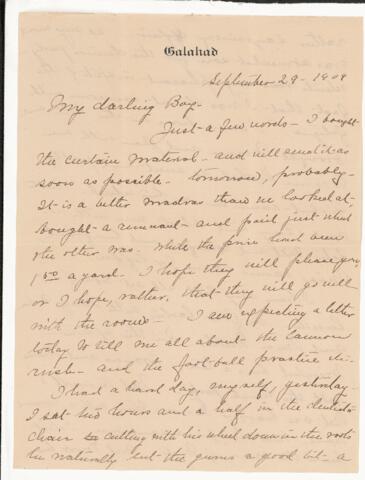 Galahad
September 29 - 1909
My darling Boy -
Just a few words - I bought
the curtain material - and will send it as
soon as possible - tomorrow, probably -
It is a better madras than we looked at -
bought a remnant - and paid just what
the other was - while the price had been
1.50 a yard - I hope they will please you
or I hope, rather, that they will go well
with the room - I am expecting a letter
today to tell me all about the cannon
rush - and the foot-ball practice
I had a hard day, myself, yesterday -
I sat two hours and a half in the dentist's
chair & cutting with his wheel down in the roots
he naturally cut the gums a good bit - a